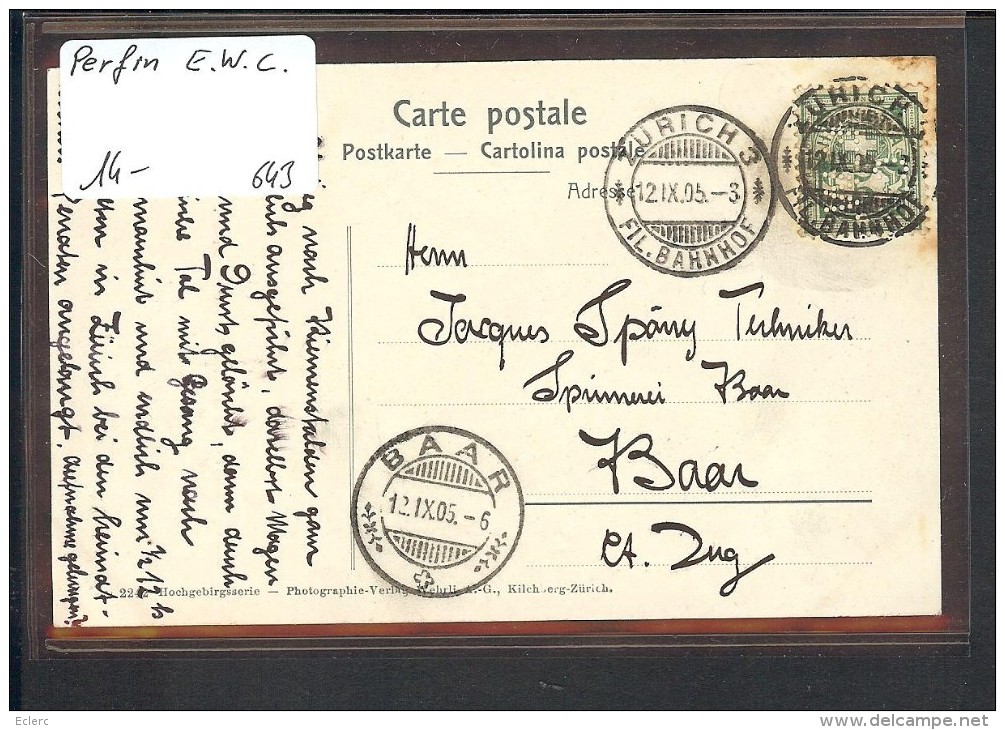 Perfin E.W.C.
14-
643
Carte postale
Postkarte — Cartolina postale
Adresse
ZÜRICH 3
12.IX.05.-3
FIL. BAHNHOF
ZÜRICH
12.IX.05.-
FIL. BAHNHOF
Herrn
Jacques Spörry Techniker
Spinnerei Baar
Baar
Ct. Zug
BAAR
12.IX.05.-6
nach Riemenstalden gam
ausgeführt, daselbst Wagen
und Durst gelöscht, dann durch
Tal mit Gesang nach
und endlich um ½12 h
in Zürich bei den heimat-
Penaten angelangt. Aufnahme gelungen?
Hochgebirgsserie — Photographie-Verlag Wehrli A.-G., Kilchberg-Zürich.
Eclerc
www.delcampe.net